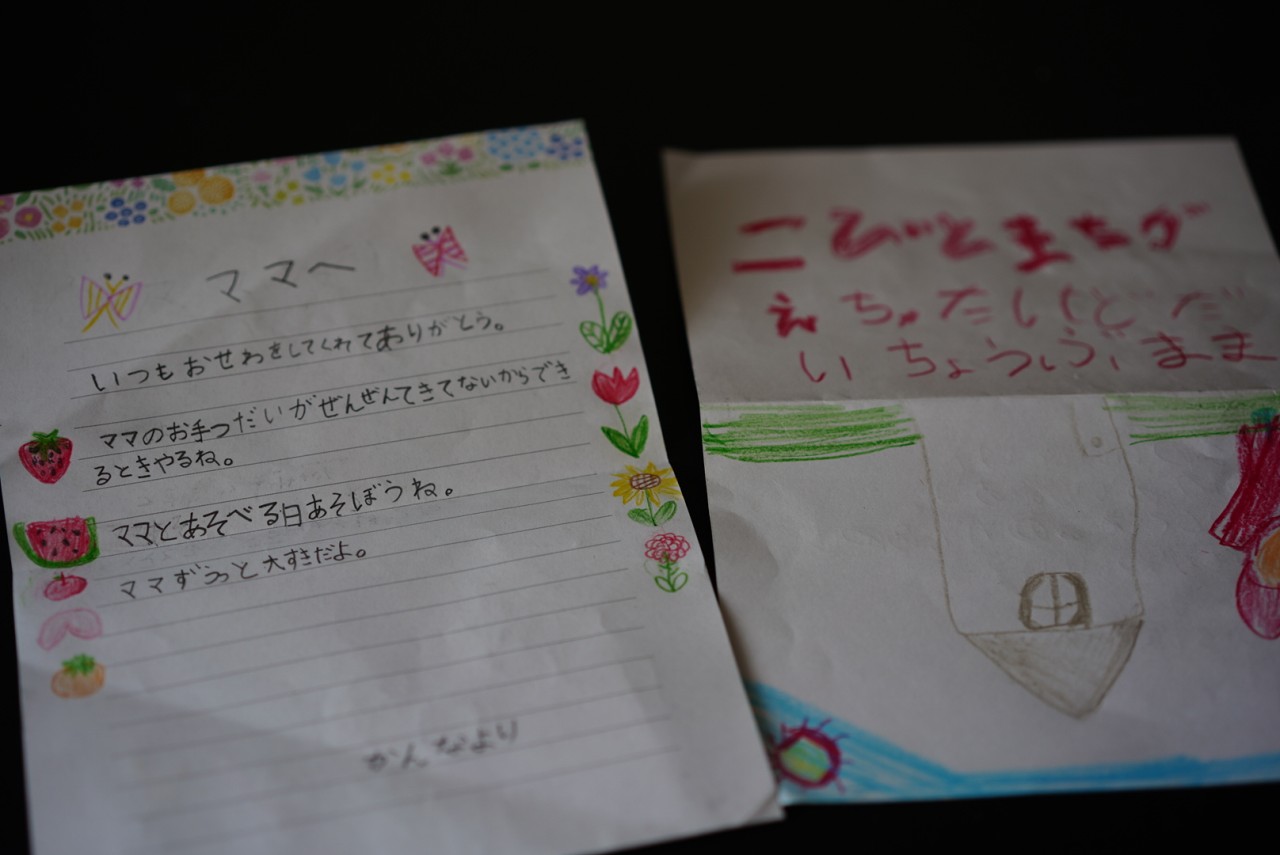 ママへ
いつもおせわをしてくれてありがとう。
ママのお手つだいがぜんぜんてきてないからでき
るときやるね。
ママとあそべる日あそぼうね。
ママずうっと大すきだよ。
かんなより
えちゃたいけどだ
いちょうぶ、まま